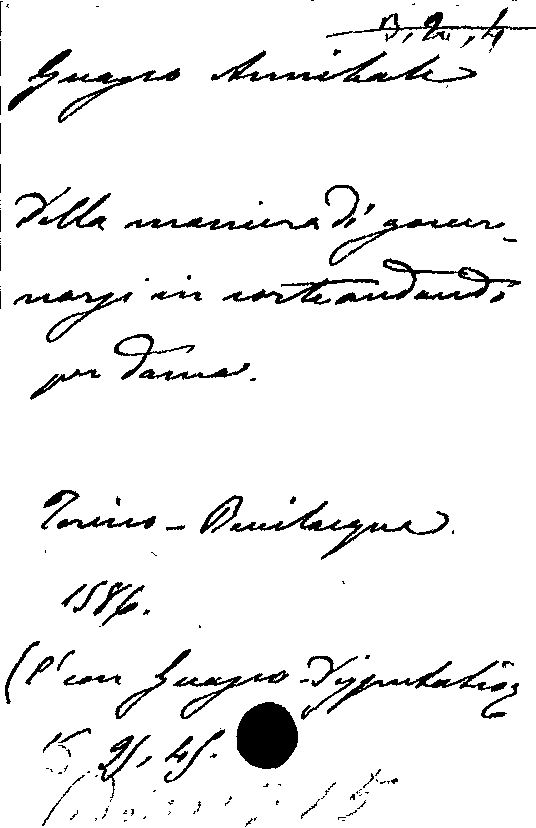 B, 2, 4
Guasco Annibale
Della maniera di gover-
narsi in corte andando
per dama.
Torino - Bevilacqua.
1586.
(È con Guasco - Disputatio
15 45.